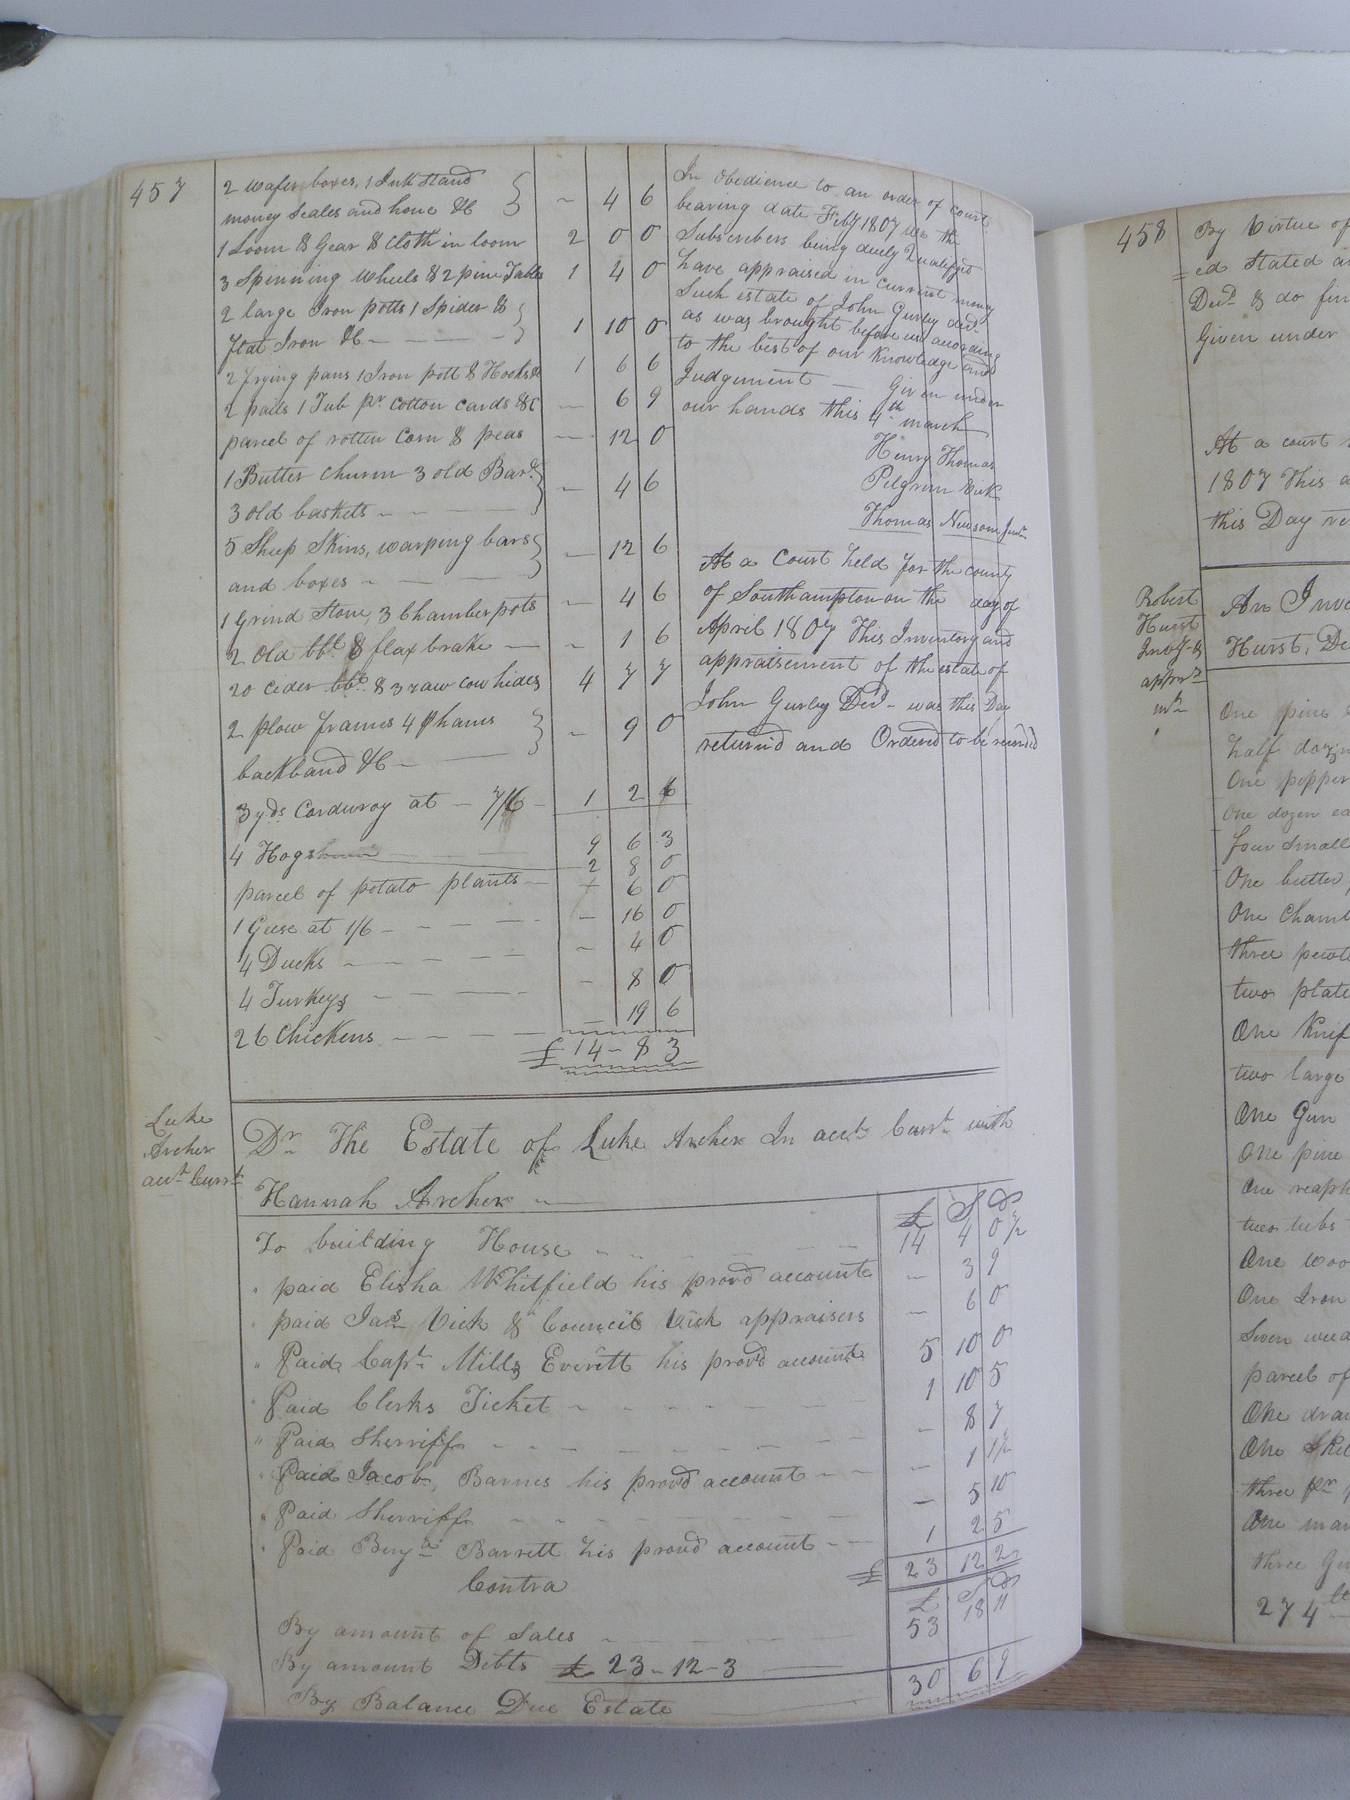 457
2 wafer boxes, 1 Ink Stand
money Scales and hone &C - 4 6
1 Loom & Gear & Cloth in loom 2 0 0
3 Spinning wheels & 2 pine Tables 1 4 0
2 large Iron potts 1 Spider &
flat Iron &C - - - 1 10 0
2 frying pans 1 Iron pott & Hooks & 1 6 6
2 pails 1 Tub pr cotton cards &C - 6 9
parcel of rotten Corn & peas - 12 0
1 Butter Churn 3 old Bar
3 old baskets - - - 4 6
5 Sheep Skins, warping bars
and boxes - - - 12 6
1 Grind Stone, 3 Chamber pots - 4 6
2 Old bbls & flax brake - - 1 6
20 Cider bbs & 3 raw cow hides 4 7 7
2 plow frames 4 phams
backband &C - - - 9 0
3 yds Corduroy at - 7/6 - 1 2 6
9 6 3
4 Hogs 2 8 0
parcel of potato plants - 6 0
1 Geese at 1/6 - - - 16 0
4 Ducks - - - 4 0
4 Turkeys - - - 8 0
26 Chickens - - - 19 6
£ 14 - 8 3
In obedience to an order of court
bearing date Feby 1807 we the
Subscribers being duely Qualifyed
have appraised in current money
Such estate of John Gurley decd
as was brought before us according
to the best of our Knowledge and
Judgement - Given under
our hands this 4th march
Henry Thomas
Pilgrim Vick
Thomas Newsom Junr
At a Court held for the county
of Southampton on the day of
April 1807 This Inventory and
appraisement of the estate of
John Gurley Decd - was this Day
returnd and Ordered to be recorded
Luke
Archer
acct Currt
Dr The Estate of Luke Archer In acct Currt with
Hannah Archer
£ S D
To building House 14 4 0 1/2
" paid Elisha Whitfield his provd account - 3 9
" paid Jas Vick & Council Vick appraisers - 6 0
" Paid Capt Mills Everett his provd account 5 10 0
" Paid Clerks Ticket - - - 1 10 5
" Paid Sherriff - - - 8 7
" Paid Jacob Barnes his provd account - - 1 1 1/2
" Paid Sherriff - - - 5 10
" Paid Benja Barrett his provd account - - 1 2 5
£ 23 12 2
Contra
£ S D
By amount of Sales - - - 53 18 11
By amount Debts £ 23 - 12 - 3
By Balance Due Estate 30 6 9
458
By Virtue of
ed Stated a
Decd & do fin
Given under
At a court
1807 This a
this Day re
Robert
Hurst
Invy &
apprt
An Inve
Hurst, De
One pine
half dozen
One pepper
One dozen ea
four small
One butter
One Chamb
three pewte
two plate
One Knif
two large
One Gun
One pine
One reaph
two tubs
One woo
One Iron
Seven weed
parcel of
One draw
One Skil
three pr
One man
three Gu
274 lb